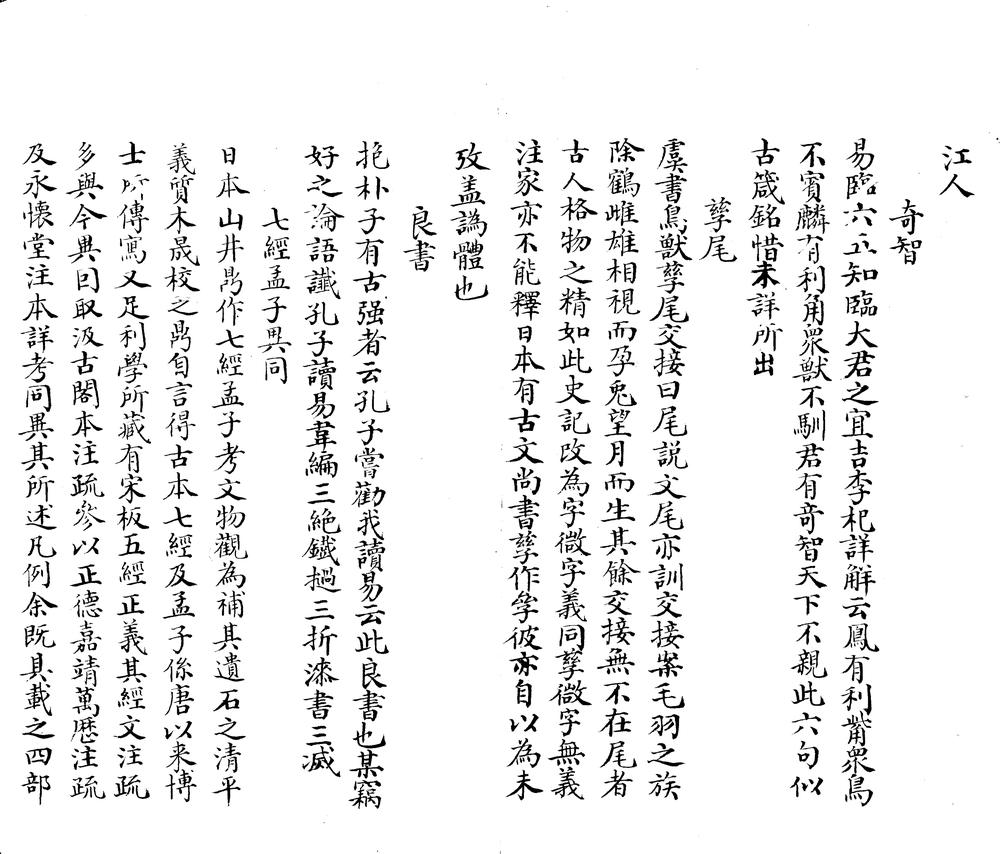 江人
奇智
易臨六五知臨大君之宜吉李杞詳解云鳳有利觜衆鳥
不賓麟有利角衆獸不馴君有竒智天下不親此六句似
古箴銘惜未詳所出
孳尾
虞書鳥獸孳尾交接曰尾説文尾亦訓交接案毛羽之族
除鶴雌雄相視而孕兎望月而生其餘交接無不在尾者
古人格物之精如此史記改為字微字義同孳微字無義
注家亦不能釋日本有古文尚書孳作孧彼亦自以為未
攷盖譌體也
良書
抱朴子有古强者云孔子嘗勸我讀易云此良書也某竊
好之論語讖孔子讀易韋編三絶鐵撾三折漆書三滅
七經孟子異同
日本山井鼎作七經孟子考文物觀為補其遺石之清平
義質木晟校之鼎自言得古本七經及孟子係唐以来博
士所傳寫又足利學所藏有宋板五經正義其經文注疏
多與今異因取汲古閣本注疏參以正德嘉靖萬歷注疏
及永懷堂注本詳考同異其所述凡例余既具載之四部